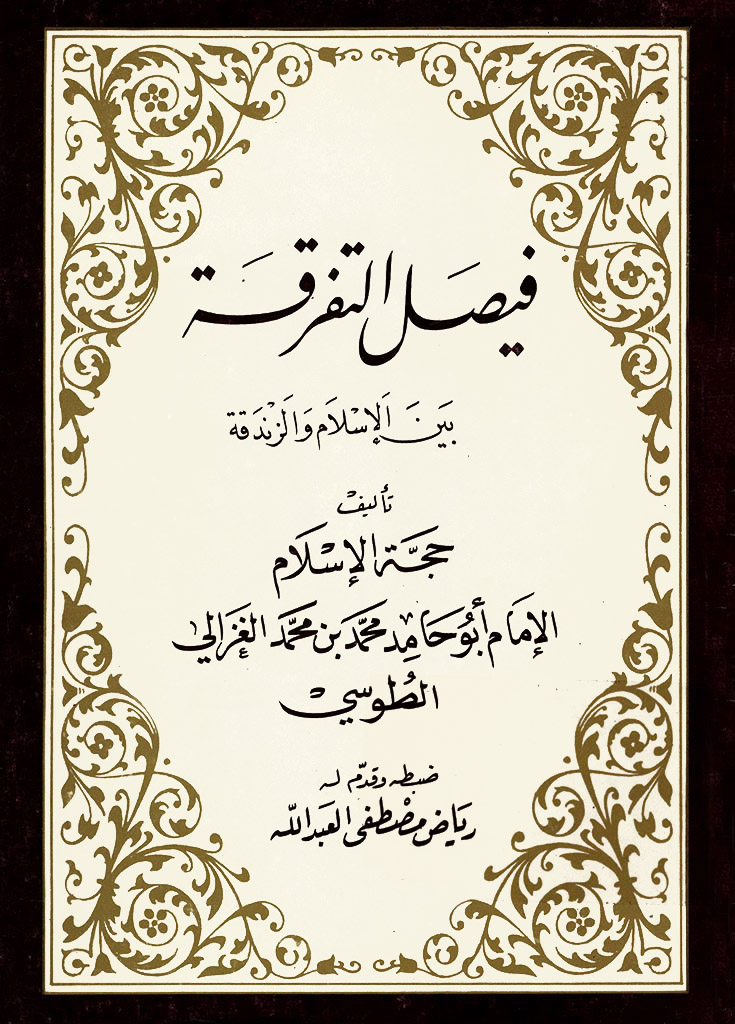 فيصل التفرقة
بَين الإسْلَام وَالزنْدَقة
تأليف
حجَّة الإسْلَام
الإمَام أبُو حَامِد محمَّد بن محمَّد الغزَالي
الطُوسي
ضبطه وقدّم له
ريَاض مصْطفى العَبد اللّه